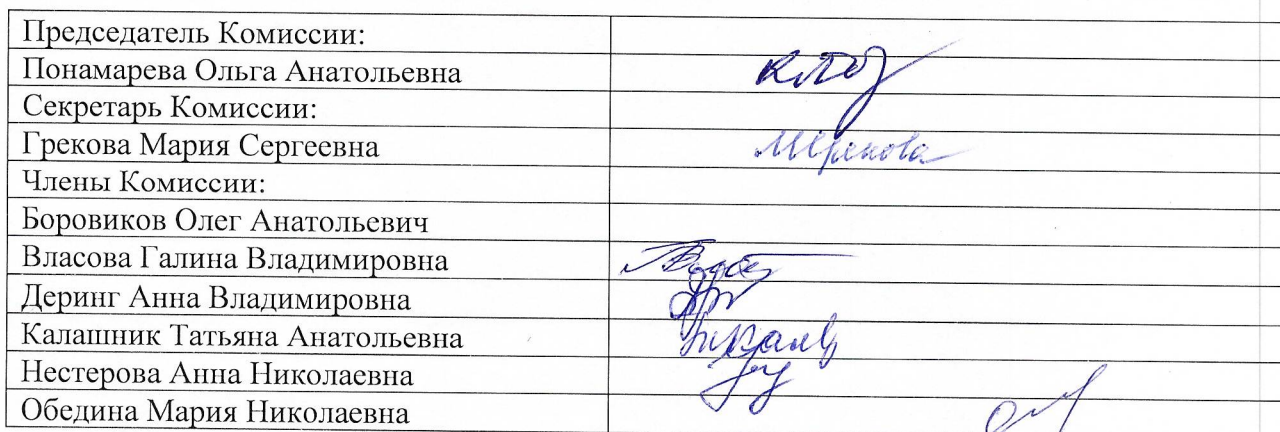 Председатель Комиссии:
Понамарева Ольга Анатольевна
Секретарь Комиссии:
Грекова Мария Сергеевна
Члены Комиссии:
Боровиков Олег Анатольевич
Власова Галина Владимировна
Деринг Анна Владимировна
Калашник Татьяна Анатольевна
Нестерова Анна Николаевна
Обедина Мария Николаевна